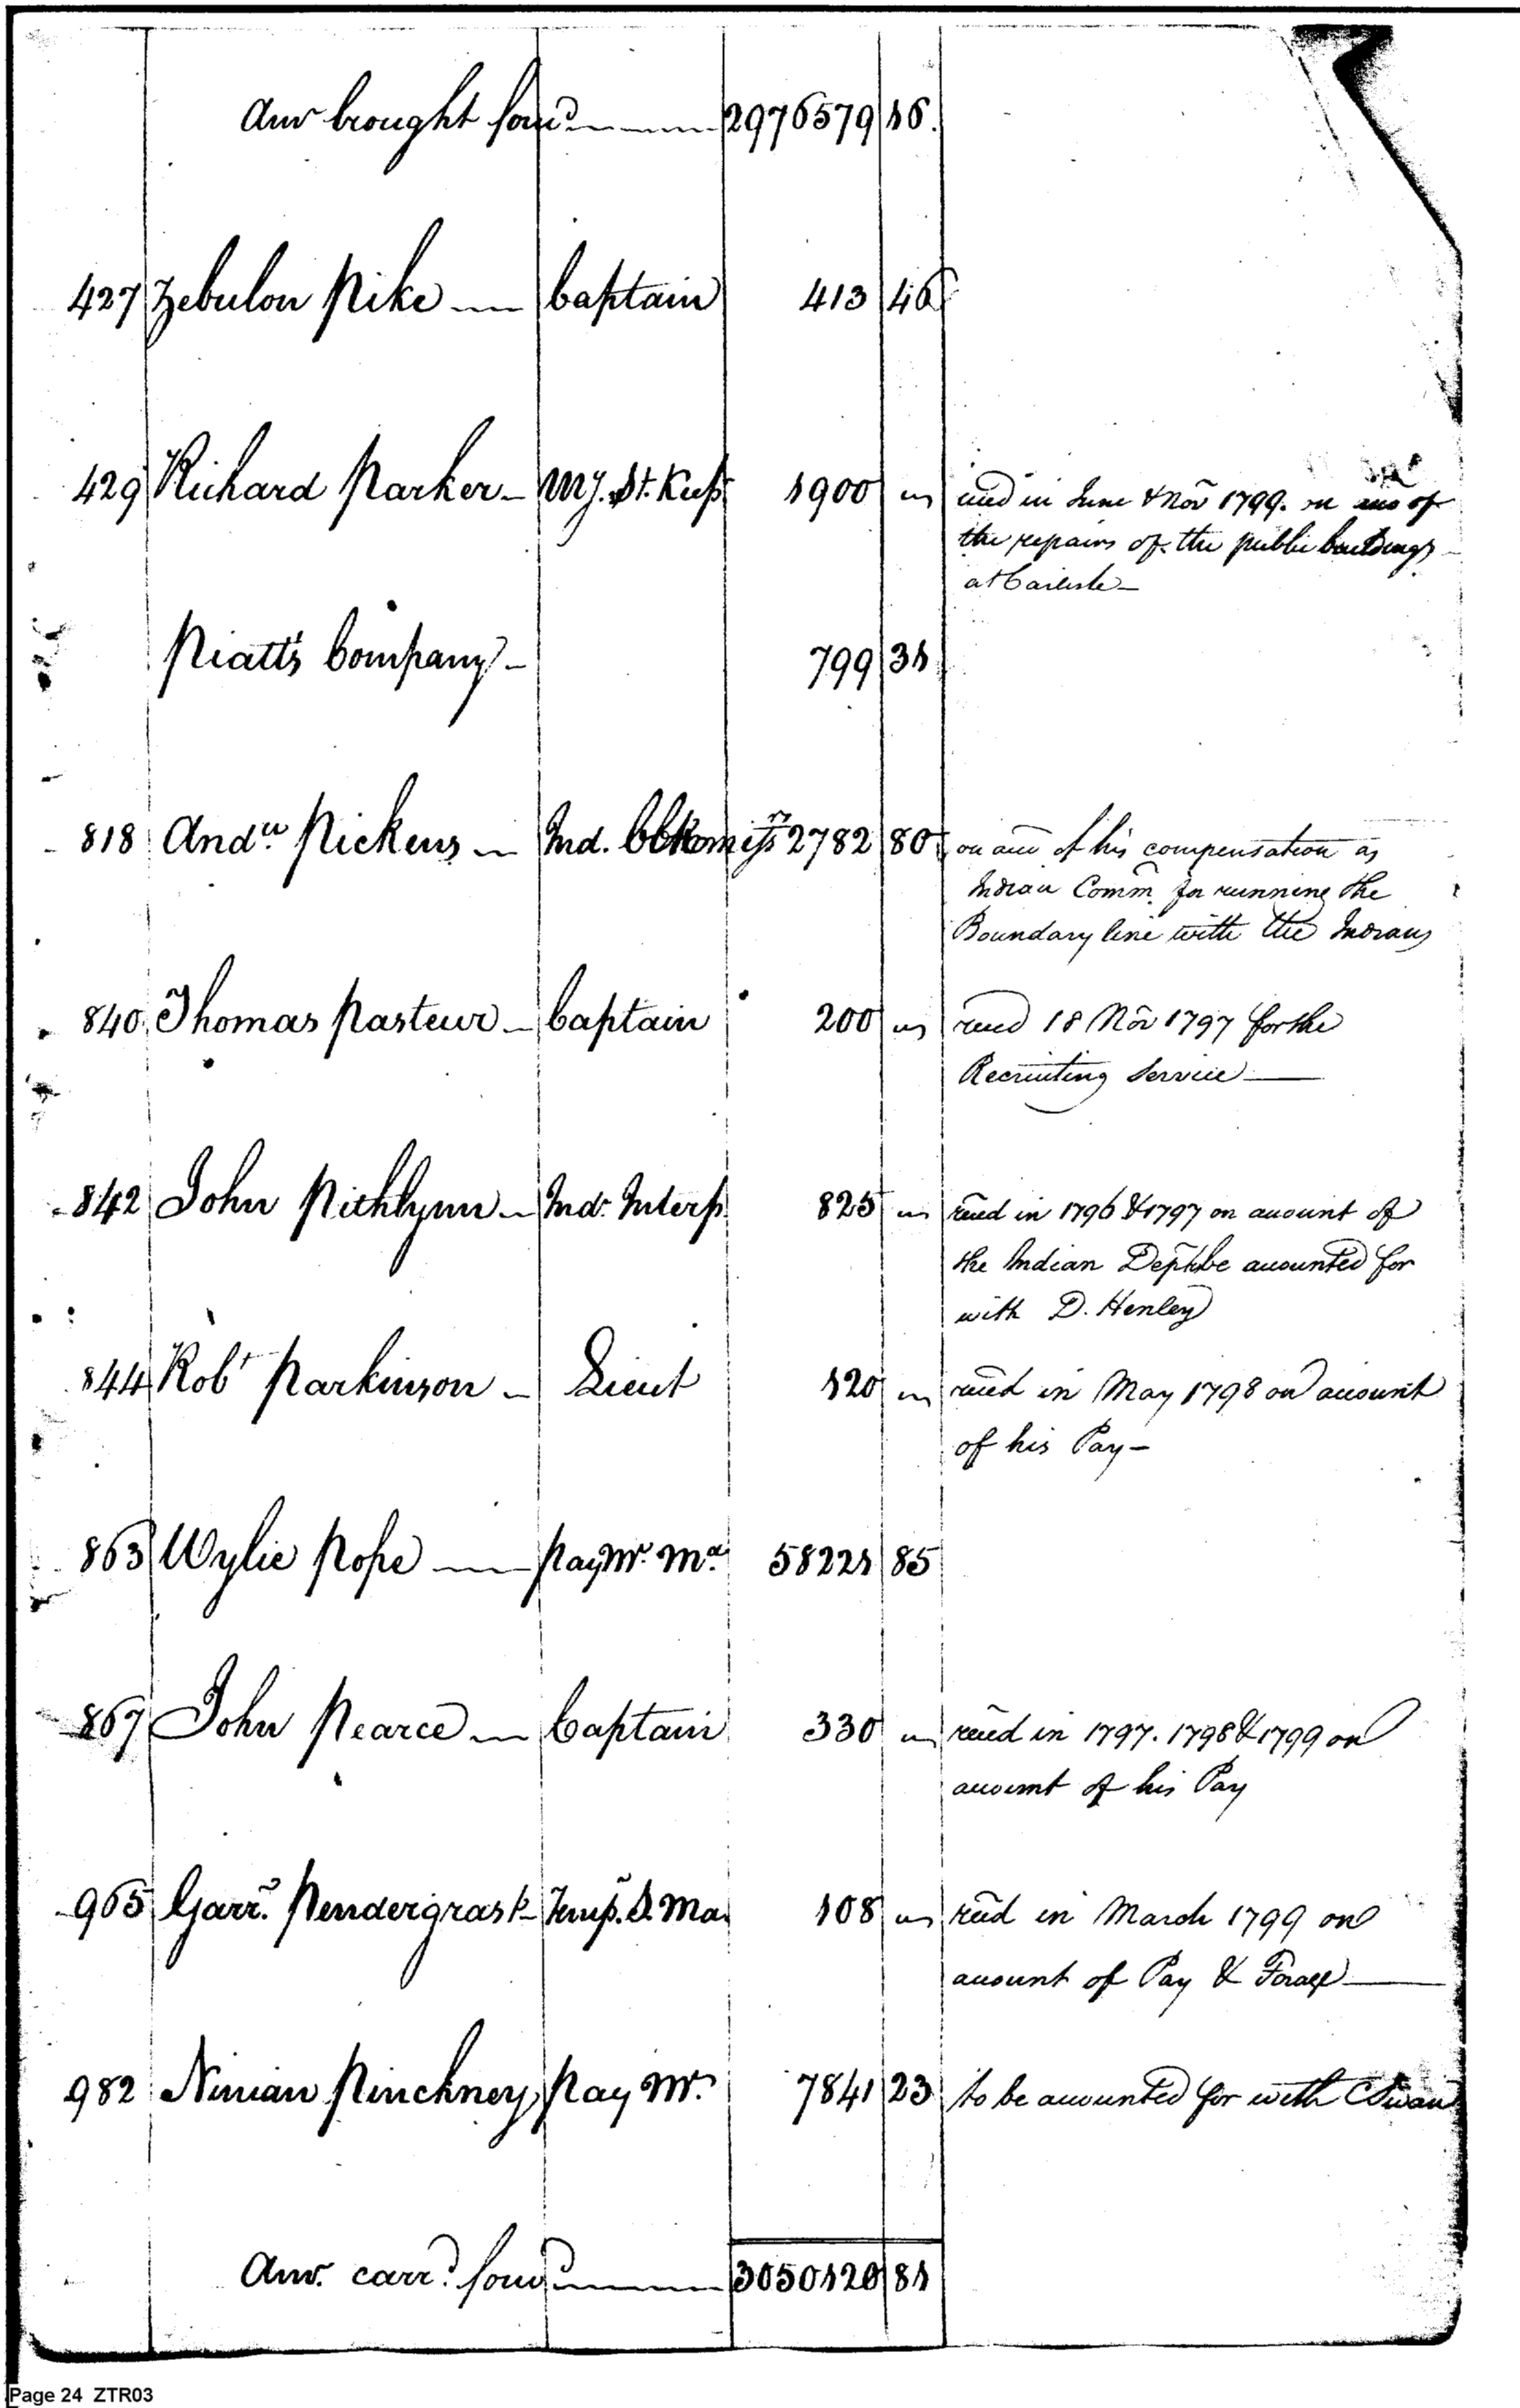 Amt brought forwd 2976579 16.
427 Zebulon Pike Captain 413 46
429 Richard Parker My. St. Keepr 1900 " recd in June & Nov 1799. on acco of
the repairs of the public buildings
at Carlisle
Piatt's Company 799 31
818 Andw Pickens Ind. Commissr 2782 80 on acct of his compensation as
Indian Comm. for running the
Boundary line with the Indians
840 Thomas Pasteur Captain 200 " recd 18 Nov 1797 for the
Recruiting Service
842 John Pitchlynn Ind. Interp. 825 " recd in 1796 & 1797 on account of
the Indian Dept to be accounted for
with D. Henley
844 Robt Parkinson Lieut 120 " recd in May 1798 on account
of his Pay
863 Wylie Pope Pay Mr. Ma. 58221 85
867 John Pearce Captain 330 " recd in 1797. 1798 & 1799 on
account of his Pay
965 Garrd. Pendergrast Temp. S. Ma. 108 " recd in March 1799 on
account of Pay & Forage
982 Ninian Pinckney Pay Mr. 7841 23 to be accounted for with C Swan
Amt. carrd. forwd 3050120 81
Page 24 ZTR03